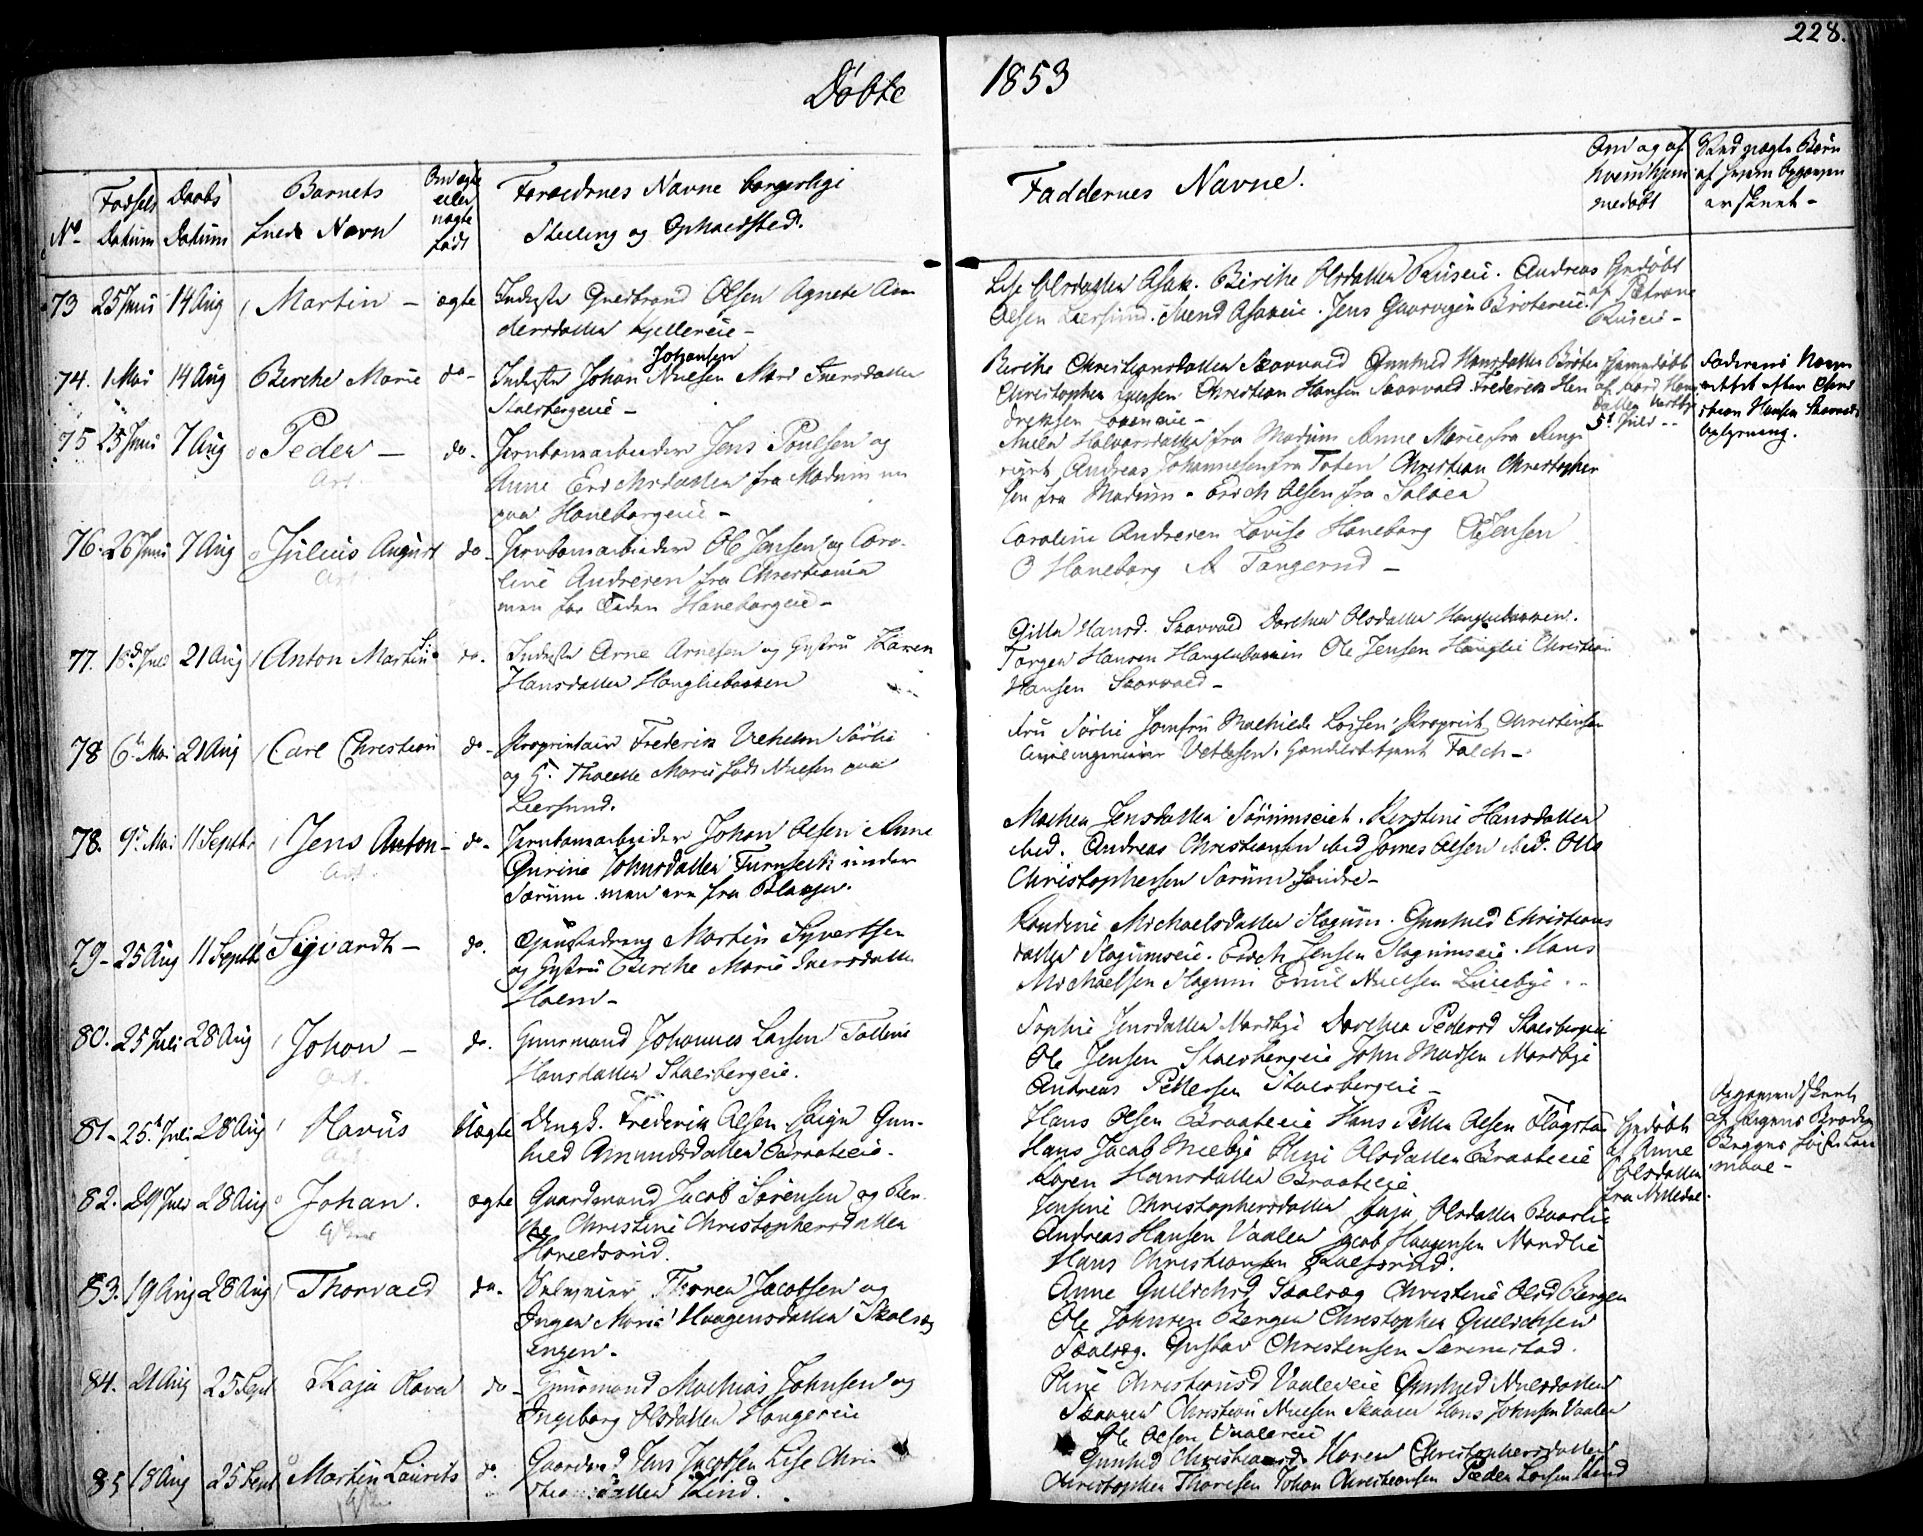 228.
Döbte 1853
No Fødsels Datum Daabs Datum Barnets fulde Navn Om ægte eller uægte født Forældrenes Navne borgerlige Stilling og Opholdsted. Faddernes Navne. Om og af hvem hjemmedøbt Ved uægte Børn af hvem Opgaven er skeet -
73 25 Juni 14 Aug Martin - ægte Inderste Gudbrand Olsen Agnete An
dersdatter Kjellereie -
Lise Olsdatter Birthe Olsdatter Ruseie. Andreas
Olsen Leersund. Svend Jens Gaarvigen Brotereie.
Hjdøbt
af Petrone
Ruseie -
74. 1 Mai 14 Aug Berthe Marie do - Inderste Johan Johansen Nielsen Mari Iversdatter
Stalsbergeie -
Berthe Christiansdatter Skarvold Gunhild Hansdatter Braaten
Christopher Jensen Christian Hansen Skarvold Frederik Hen
driksen
Hjemmedøbt
5te Juli -
Faderens Navn
rettet efter Chri
stian Hansen Skarvolds
Oplysning.
75 25 Juni 7 Aug Peder - do - Jernbanearbeider Jens Poulsen og
Anne Erichsdatter fra Modum nu
paa Haneborgeie -
Halvorsdatter fra Modum Anne Marie fra Ringe
riget Andreas Johannesen fra Toten Christian Christopher
sen fra Modum - Erich Olsen fra Soløer
76. 26 Juni 7 Aug Julius August do - Jernbanearbeider Ole Jensen og Caro
line Andresen fra Christiania
men for Tiden Haneborgeie -
Caroline Andresen Lovise Haneborg O Jensen
O Haneborg A Tangerud -
77. 18de Juli 21 Aug Anton Martin do. Inderste Arne Arnesen og Hustru Karen
Hansdatter Hanglebakken
Gilla Hansd. Skarvold Dorthea Olsdatter Hanglebakken.
Torger Hansen Hanglebakken Ole Jensen Christian
Hansen Skarvold -
78 6te Mai 21 Aug Carl Christian do - Proprietair Frederik Vilhelm Sørlie
og H. Thalette Marie født Nielsen paa
Leersund.
Fru Sørlie Jomfru Mathilde Larsen, Propriet Christensen
Civilingenieur Vetlesen. Handelsbetjent Falch -
78. 9de Mai 11 Septbr Jens Anton - do - Jernbanearbeider Johan Olsen Anne
Qvirine Johnsdatter Furuset under
Sørum men ere fra Blaker.
Mathea Jensdatter Sørumseiet. Kirstine Hansdatter
ibid. Andreas Christiansen ibid Johannes Olsen ibid. Ole
Christophersen Sørum søndre -
79 - 25 Aug 11 Septbr Sigvardt - do. Gaardmand Martin Syvertsen
og Hustru Berthe Marie Iversdatter
Holm -
Randine Michaelsdatter Hagum. Gunhild Christians
datter Hagumseie. Erich Jensen Haguumseie. Hans
Michaelsen Haguum Emil Nielsen Lillebye -
80. 25 Juli 28 Aug Johan - do. Huusmand Johannes Larsen Tolline
Hansdatter Stalsbergeie.
Sophie Jensdatter Nordbye Dorthea Pedersd Stalsbergeie
Ole Jensen Stalsbergeie John Madsen Nordbye
Andreas Pettersen Stalsbergeie -
81 - 25de Juli 28 Aug Havus Uægte Ungk. Frederik Olsen. Pige Gun-
hild Amundsdatter Braateeie.
Hans Olsen Braateeie Hans Petter Olsen Flogstad
Hans Jacob Mælbye Oline Olsdatter Braateeie
Karen Hansdatter Braateeie
Hjdøbt
af Anne
Olsdatter
fra Nittedal.
Opgaven skeet
af Pigens Broder
Begges første Leier
maal -
82. 29 Juli 28 Aug Johan. ægte Gaardmand Jacob Sørensen og Ber
the Christine Christophersdatter
Haralsrud.
Jensine Christophersdatter Kaja Olsdatter Baarlie
Andreas Hansen Vaaler Jacob Haagensen Nordlie
Hans Christiansen
83. 19 Aug 28 Aug Thorvald do. Thorer Jacobsen og
Inger Marie Haagensdatter Skalreg
engen -
Anne Gulichsd Skalreg Christine Olsd Bergen
Ole Johnsen Bergen Christopher Gulichsen
Skalreg. Gustav Christensen Sørumstad.
84. 21 Aug 25 Sept Kaja Hava do - Huusmand Mathias Johnsen og
Ingeborg Olsdatter Haugereie
Oline Christiansd Vaalereie Gunhild Nielsdatter
Skarer Christian Nielsen Skarer Hans Johnsen Vaaler
Ole Olsen Vaalereie
85 18 Aug 25 Sept Martin Laurits do. Gaardmd Jens Jacobsen Lise Chri
stiansdatter Rud.
Gunhild Christiansd Haver Christophersdatter
Christopher Thoresen Johan Christiansen Peder Larsen Rud